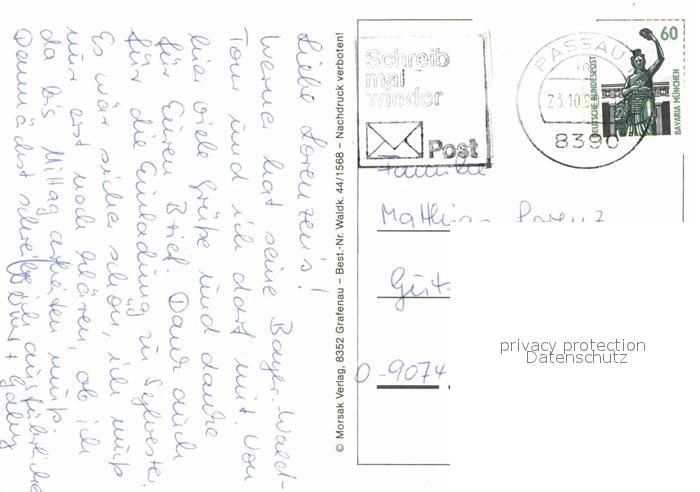 Liebe Lorenzen's!
Werner hat seine Bayer. Wald-
Tour und ich darf mit. Von
hier viele Grüße und danke
für Euren Brief. Dank auch
für die Einladung zu Sylvester.
Es wär sicher schön, ich muß
nur erst noch klären, ob ich
da bis Mittag arbeiten muß.
Demnächst schreibe ich ausführlicher
© Morsak Verlag, 8352 Grafenau – Best.-Nr. Waldk. 44/1568 – Nachdruck verboten!
Schreib
mal
wieder
Post
PASSAU
23.10.9
8390
60
DEUTSCHE BUNDESPOST
BAVARIA MÜNCHEN
Familie
Matthias Lorenz
Gut
O-9074
privacy protection
Datenschutz